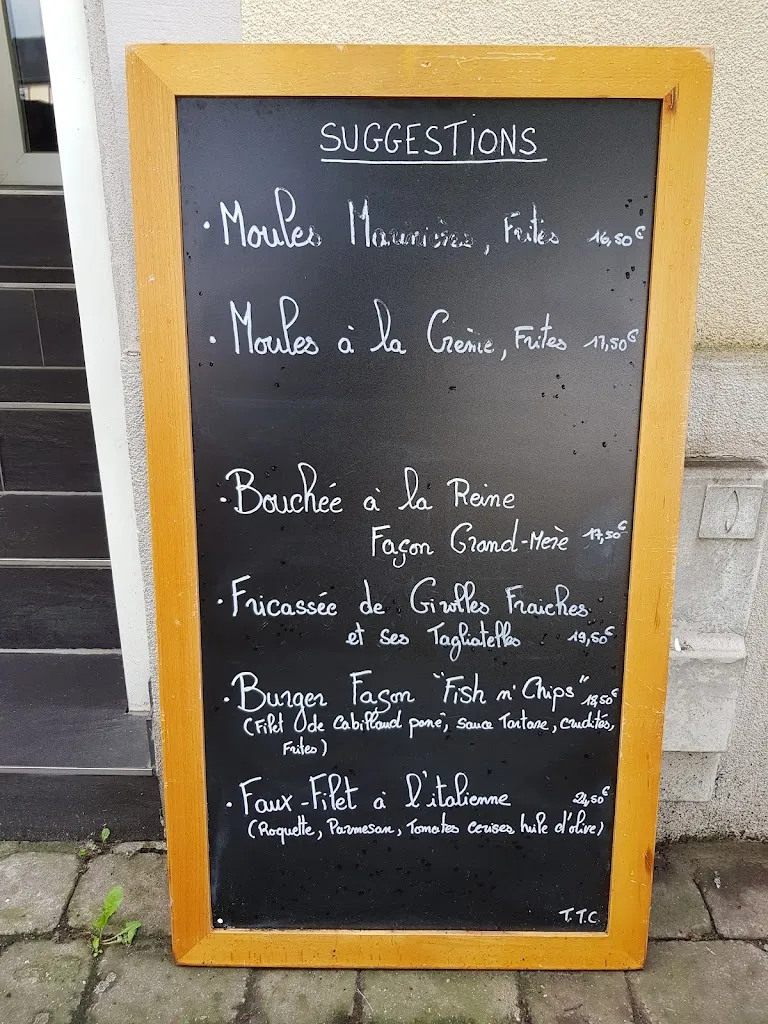 SUGGESTIONS
• Moules Marinières, Frites 16,50€
• Moules à la Crème, Frites 17,50€
• Bouchée à la Reine
Façon Grand-Mère 17,50€
• Fricassée de Girolles Fraiches
et ses Tagliatelles 19,50€
• Burger Façon "Fish n' Chips" 18,50€
(Filet de Cabillaud pané, sauce Tartare, crudités,
Frites)
• Faux-Filet à l'italienne 24,50€
(Roquette, Parmesan, Tomates cerises, huile d'olive)
T.T.C.